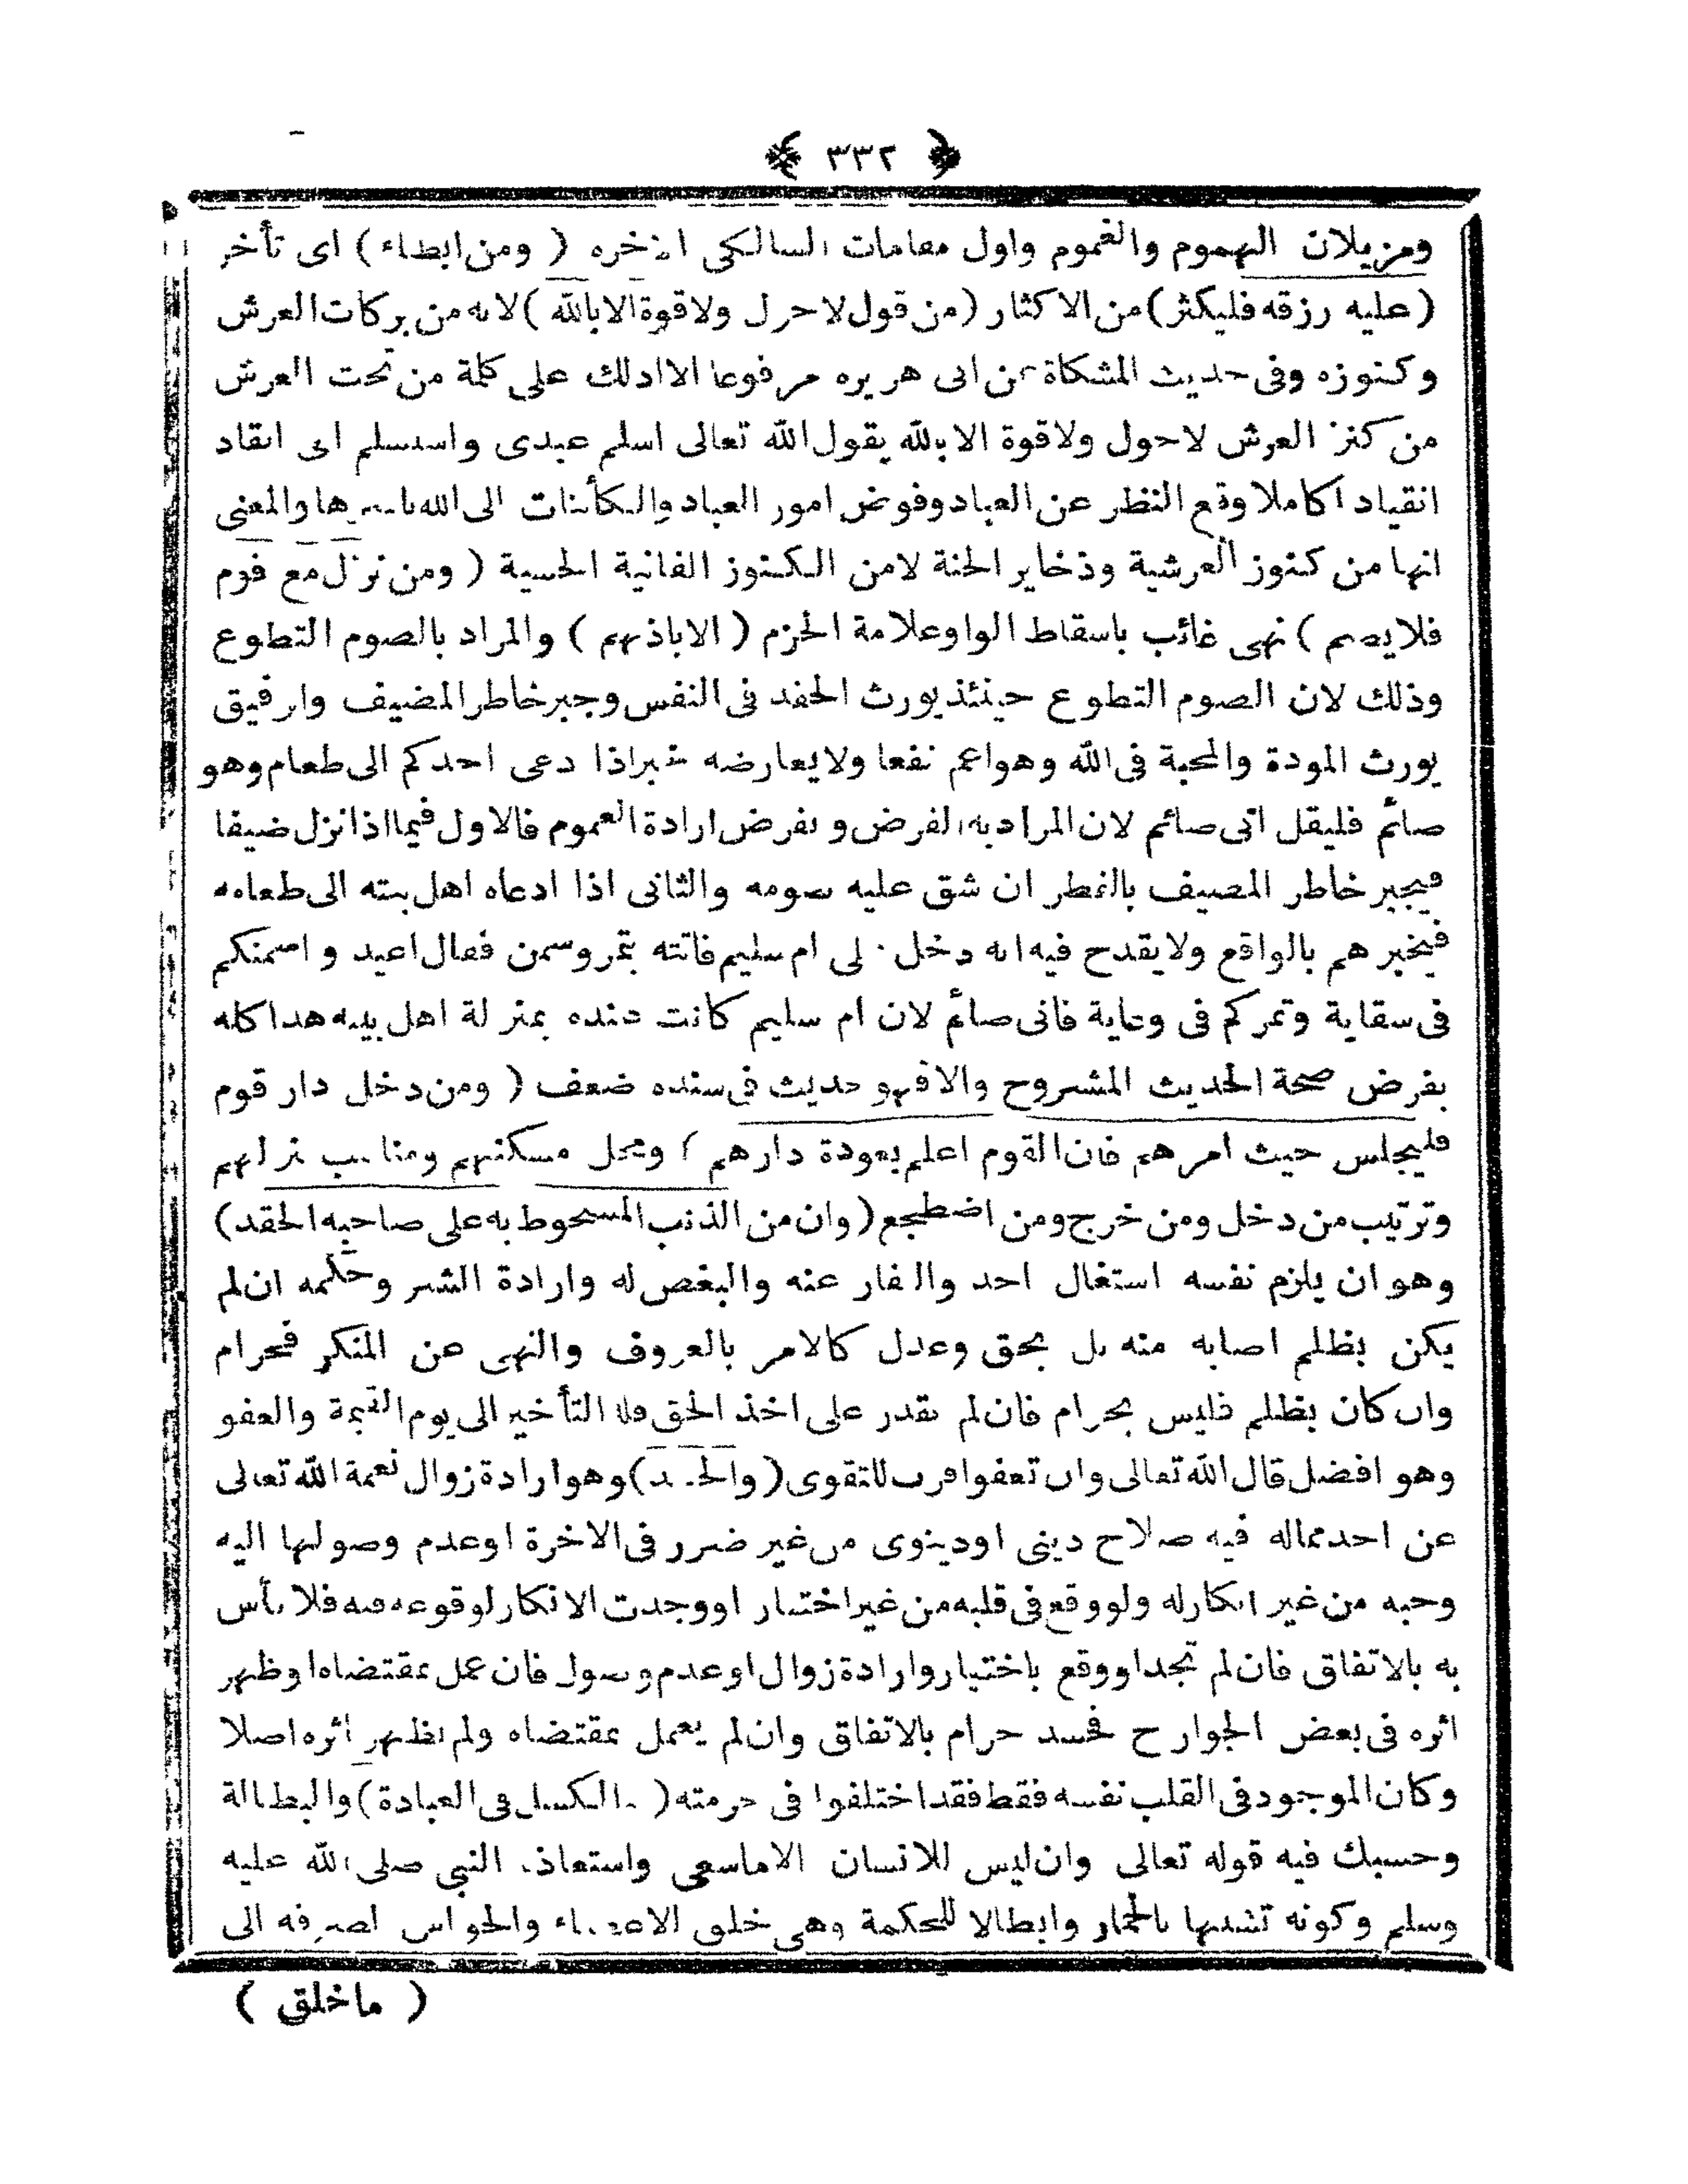 ﴿ ٣٣٢ ﴾
ومزيلان الهموم والغموم واول مقامات السالكى الآخره ( ومن ابطاء ) اى تأخر
( عليه رزقه فليكثر ) من الاكثار ( من قول لاحول ولا قوة الا بالله ) لانه من بركات العرش
وكنوزه وفى حديث المشكاة عن ابى هريره مرفوعا الا ادلك على كلمة من تحت العرش
من كنز العرش لاحول ولا قوة الا بالله يقول الله تعالى اسلم عبدى واستسلم اى انقاد
انقيادا كاملا وقع النظر عن العباد وفوض امور العباد والكأنات الى الله باسرها والمعنى
انها من كنوز العرشية وذخاير الجنة لامن الكنوز الفانية الحسية ( ومن نزل مع قوم
فلا يصم ) نهى غائب باسقاط الواو علامة الجزم ( الا باذنهم ) والمراد بالصوم التطوع
وذلك لان الصوم التطوع حينئذ يورث الحقد فى النفس وجبر خاطر المضيف وارفيق
يورث المودة والمحبة فى الله وهو اعم نفعا ولا يعارضه خبر اذا دعى احدكم الى طعام وهو
صائم فليقل انى صائم لان المراد به الفرض وبفرض ارادة العموم فالاول فيما اذا نزل ضيفا
فيجبر خاطر المضيف بالفطر ان شق عليه صومه والثانى اذا ادعاه اهل بيته الى طعامه
فيخبرهم بالواقع ولا يقدح فيه انه دخل الى ام سليم فاتته بتمر وسمن فقال اعيدوا سمنكم
فى سقاية وتمركم فى وعاية فانى صائم لان ام سليم كانت عنده بمنزلة اهل بيته هذا كله
بفرض صحة الحديث المشروح والا فهو حديث فى سنده ضعف ( ومن دخل دار قوم
فليجلس حيث امرهم فان القوم اعلم بعودة دارهم ) ومحل مسكنهم ومناسب نزلهم
وترتيب من دخل ومن خرج ومن اضطجع ( وان من الذنب المسخوط به على صاحبه الحقد )
وهو ان يلزم نفسه استغال احد والنفار عنه والبغض له وارادة الشر وحكمه ان لم
يكن بظلم اصابه منه بل بحق وعدل كالامر بالعروف والنهى عن المنكر فحرام
وان كان بظلم فليس بحرام فان لم يقدر على اخذ الحق فله التأخير الى يوم القيمة والعفو
وهو افضل قال الله تعالى وان تعفوا اقرب للتقوى ( والحسد ) وهو ارادة زوال نعمة الله تعالى
عن احد مماله فيه صلاح دينى اودينوى من غير ضرر فى الاخرة او عدم وصولها اليه
وحبه من غير انكار له ولو وقع فى قلبه من غير اختيار او وجدت الانكار لوقوعه فيه فلا بأس
به بالاتفاق فان لم تجد او وقع باختيار وارادة زوال او عدم وصول فان عمل بمقتضاه او ظهر
اثره فى بعض الجوارح فحسد حرام بالاتفاق وان لم يعمل بمقتضاه ولم يظهر اثره اصلا
وكان الموجود فى القلب نفسه فقط فقد اختلفوا فى حرمته ( والكسل فى العبادة ) والبطالة
وحسبك فيه قوله تعالى وان ليس للانسان الا ماسعى واستعاذ النبى صلى الله عليه
وسلم وكونه تشبها بالجمار وابطالا للحكمة وهى خلق الاعضاء والحواس لصرفه الى
( ماخلق )